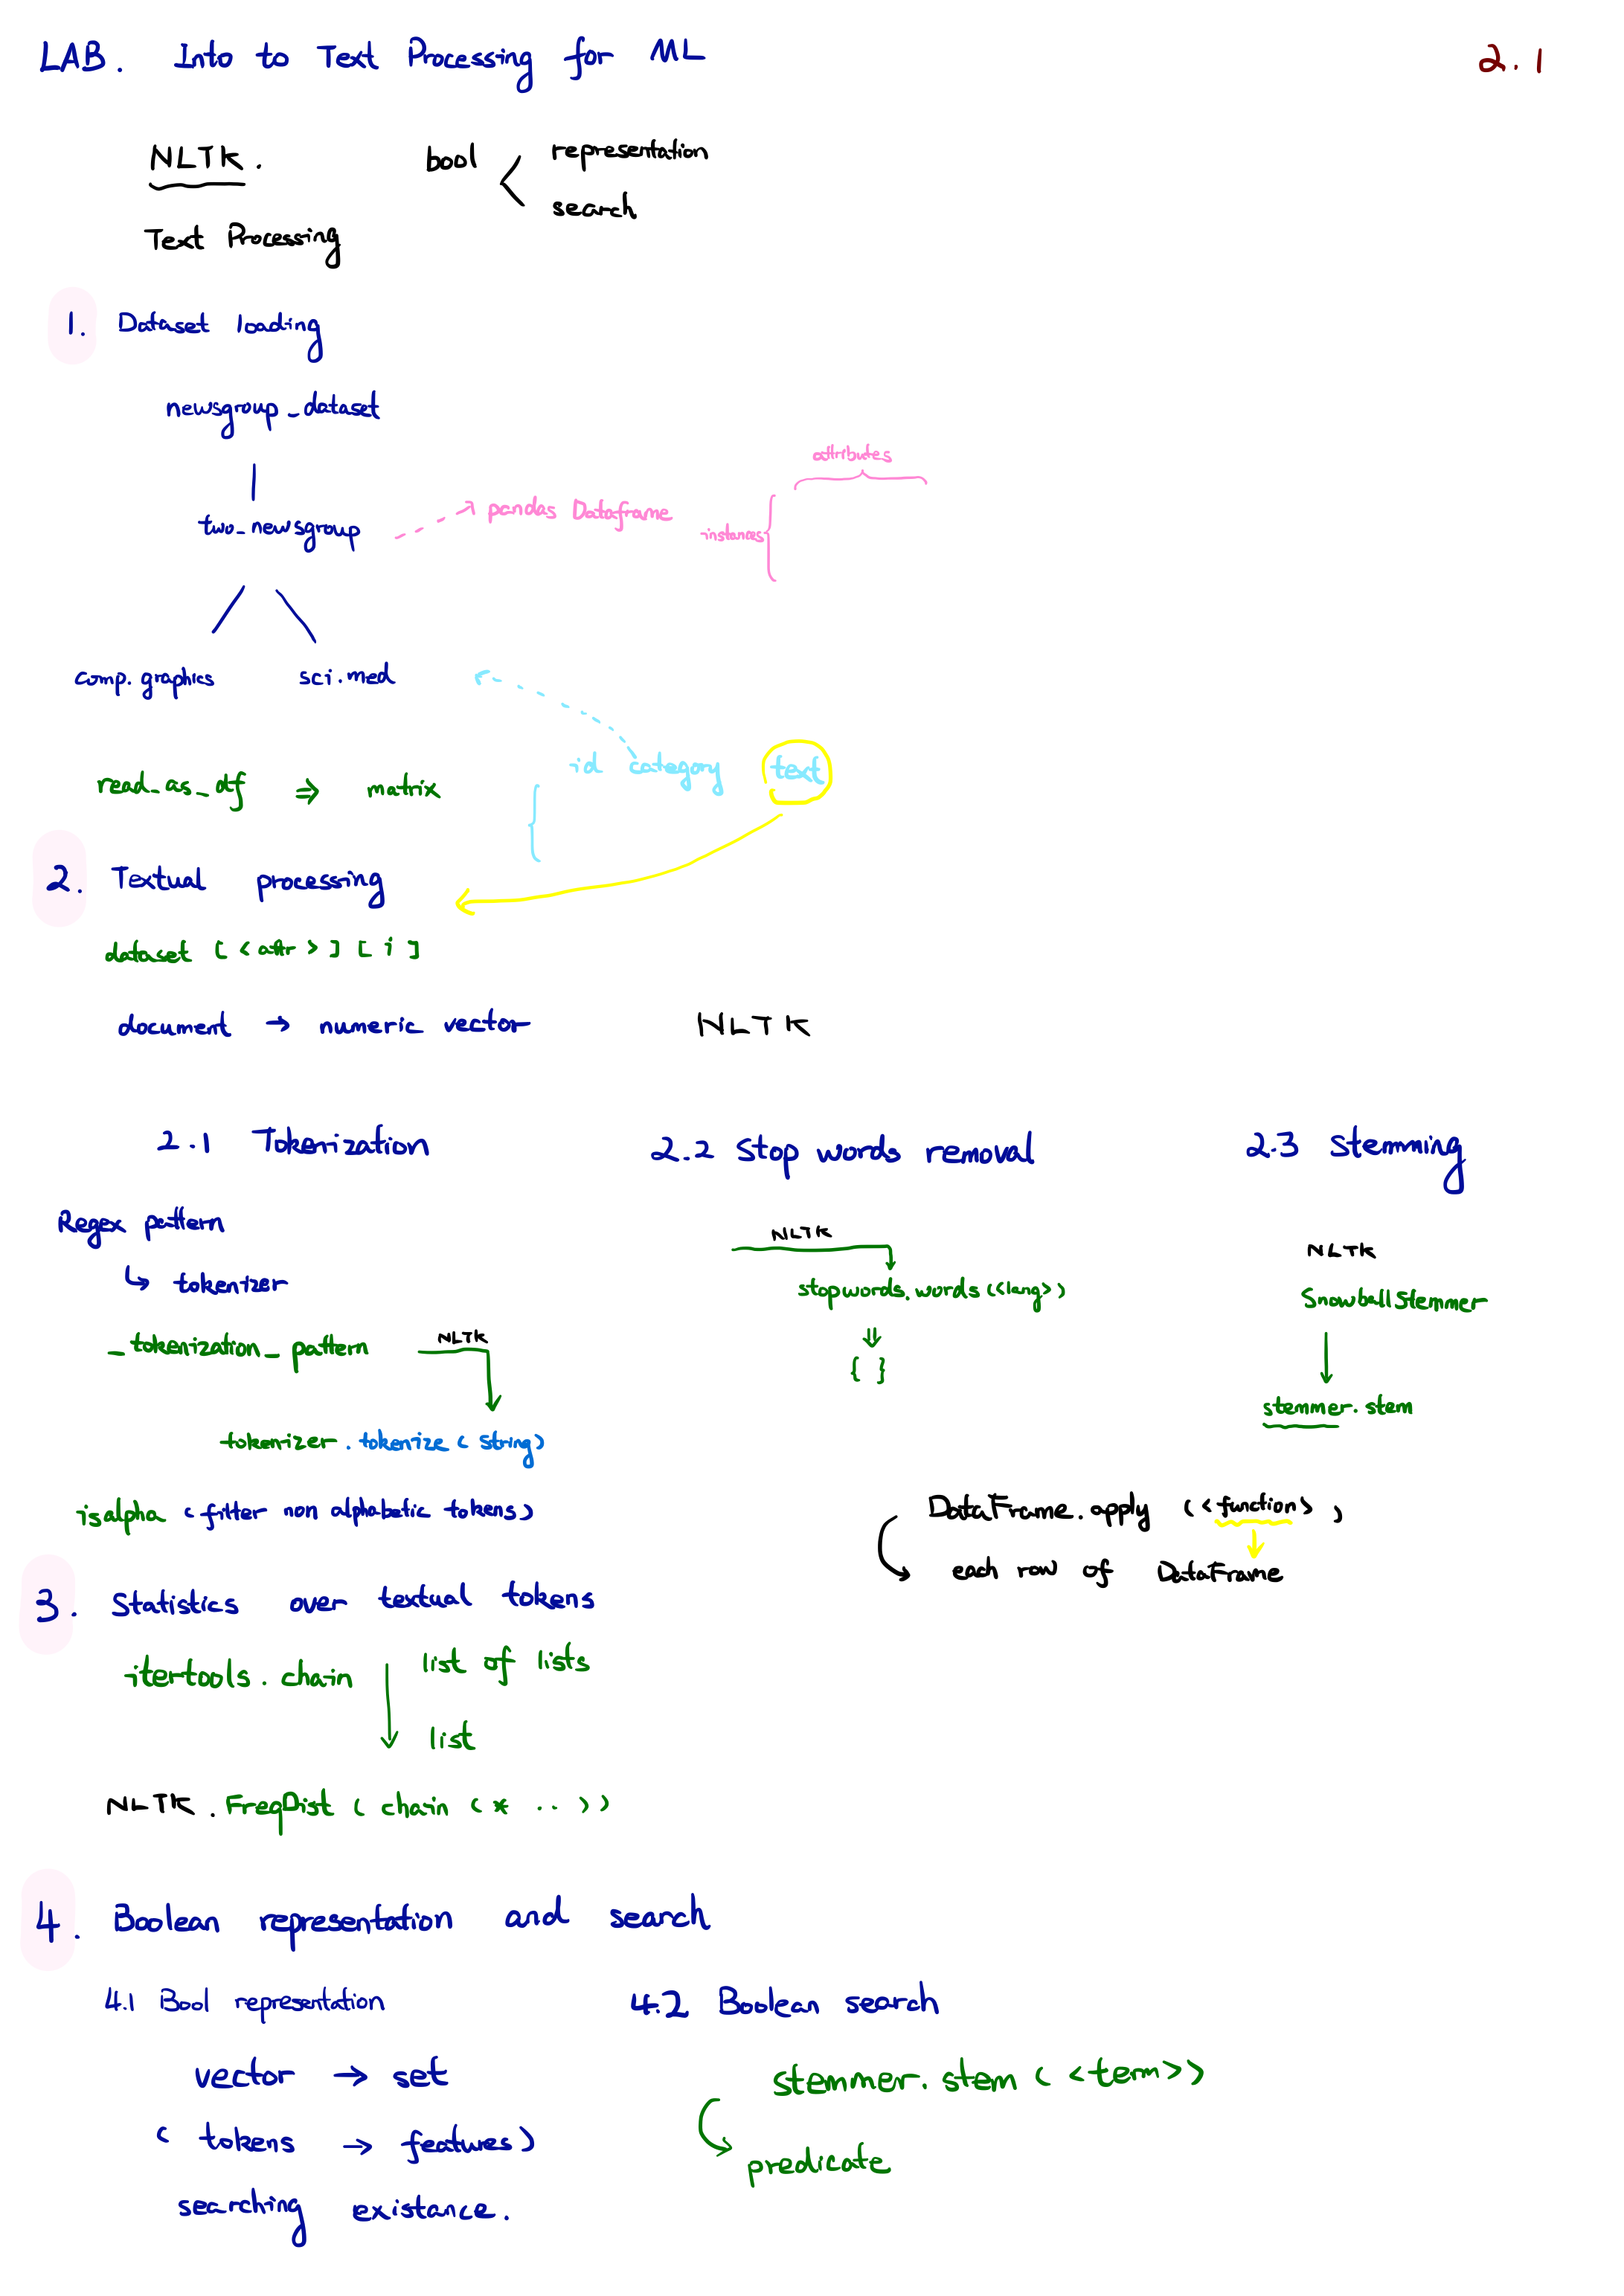 LAB. Into to Text Processing for ML 2.1
NLTK. bool representation
search
Text Processing
1. Dataset loading
newsgroup_dataset
attributes
two_newsgroup pandas Dataframe instances
comp.graphics sci.med
id category text
read_as_df ⇒ matrix
2. Textual processing
dataset [<attr>][i]
document → numeric vector NLTK
2.1 Tokenization 2.2 Stop words removal 2.3 Stemming
Regex pattern
↳ tokenizer
_tokenization_pattern NLTK
tokenizer.tokenize(string)
isalpha (filter non alphabetic tokens)
NLTK
stopwords.words(<lang>)
⇓
{ }
NLTK
SnowballStemmer
stemmer.stem
DataFrame.apply (<function>)
each row of DataFrame
3. Statistics over textual tokens
itertools.chain list of lists
list
NLTK.FreqDist(chain(* ..))
4. Boolean representation and search
4.1 Bool representation 4.2 Boolean search
vector → set
(tokens → features)
searching existance.
stemmer.stem(<term>)
predicate